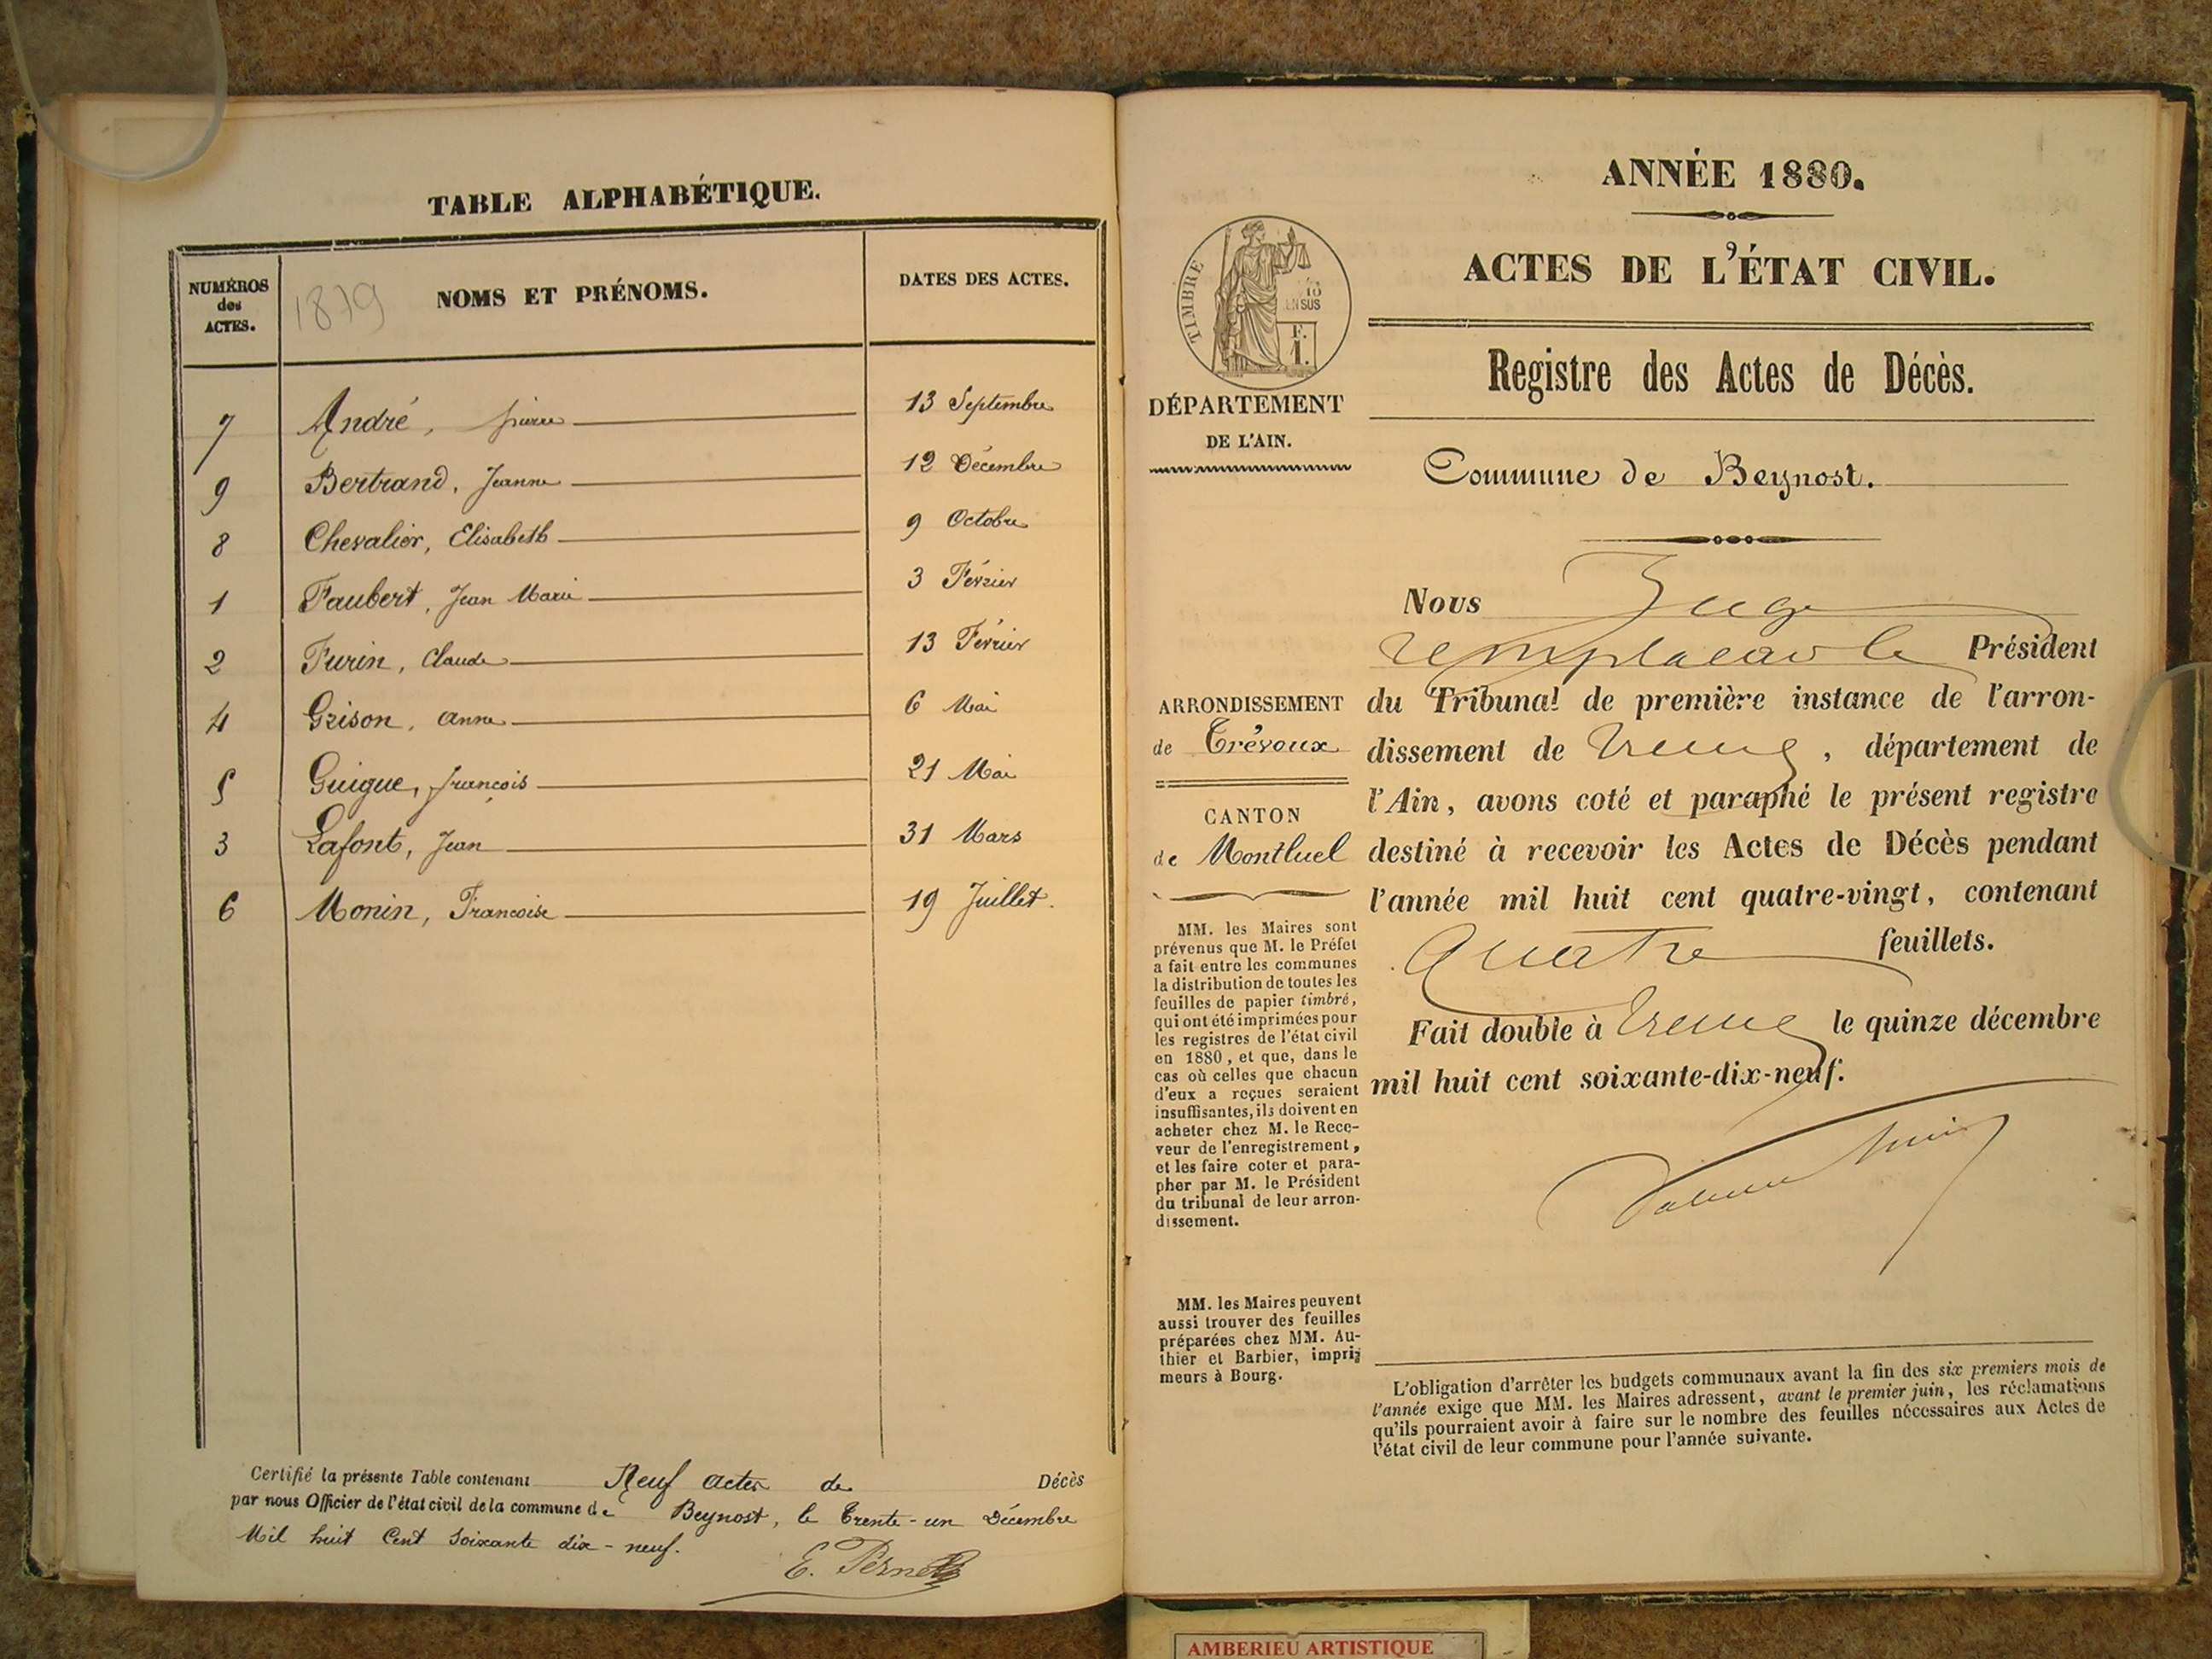 TABLE ALPHABÉTIQUE.
NUMÉROS des ACTES.
1879
NOMS ET PRÉNOMS.
DATES DES ACTES.
7 André, pierre 13 Septembre
9 Bertrand, Jeanne 12 Décembre
8 Chevalier, Elisabeth 9 Octobre
1 Faubert, Jean Marie 3 Février
2 Furin, Claude 13 Février
4 Grison, anne 6 Mai
5 Guigue, françois 21 Mai
3 Lafont, Jean 31 Mars
6 Monin, Françoise 19 Juillet.
Certifié la présente Table contenant Neuf actes de Décès
par nous Officier de l'état civil de la commune de Beynost, le trente-un Décembre
Mil huit Cent Soixante dix-neuf.
E. Pernet
ANNÉE 1880.
ACTES DE L'ÉTAT CIVIL.
TIMBRE
EN SUS
F.
1.
DÉPARTEMENT
DE L'AIN.
Registre des Actes de Décès.
Commune de Beynost.
ARRONDISSEMENT
de Trévoux
CANTON
de Montluel
MM. les Maires sont
prévenus que M. le Préfet
a fait entre les communes
la distribution de toutes les
feuilles de papier timbré,
qui ont été imprimées pour
les registres de l'état civil
en 1880, et que, dans le
cas où celles que chacun
d'eux a reçues seraient
insuffisantes, ils doivent en
acheter chez M. le Rece-
veur de l'enregistrement,
et les faire coter et para-
pher par M. le Président
du tribunal de leur arron-
dissement.
MM. les Maires peuvent
aussi trouver des feuilles
préparées chez MM. Au-
thier et Barbier, impri-
meurs à Bourg.
Nous Juge
remplaçant le Président
du Tribunal de première instance de l'arron-
dissement de Trévoux, département de
l'Ain, avons coté et paraphé le présent registre
destiné à recevoir les Actes de Décès pendant
l'année mil huit cent quatre-vingt, contenant
quatre feuillets.
Fait double à Trévoux le quinze décembre
mil huit cent soixante-dix-neuf.
L'obligation d'arrêter les budgets communaux avant la fin des six premiers mois de
l'année exige que MM. les Maires adressent, avant le premier juin, les réclamations
qu'ils pourraient avoir à faire sur le nombre des feuilles nécessaires aux Actes de
l'état civil de leur commune pour l'année suivante.
AMBERIEU ARTISTIQUE